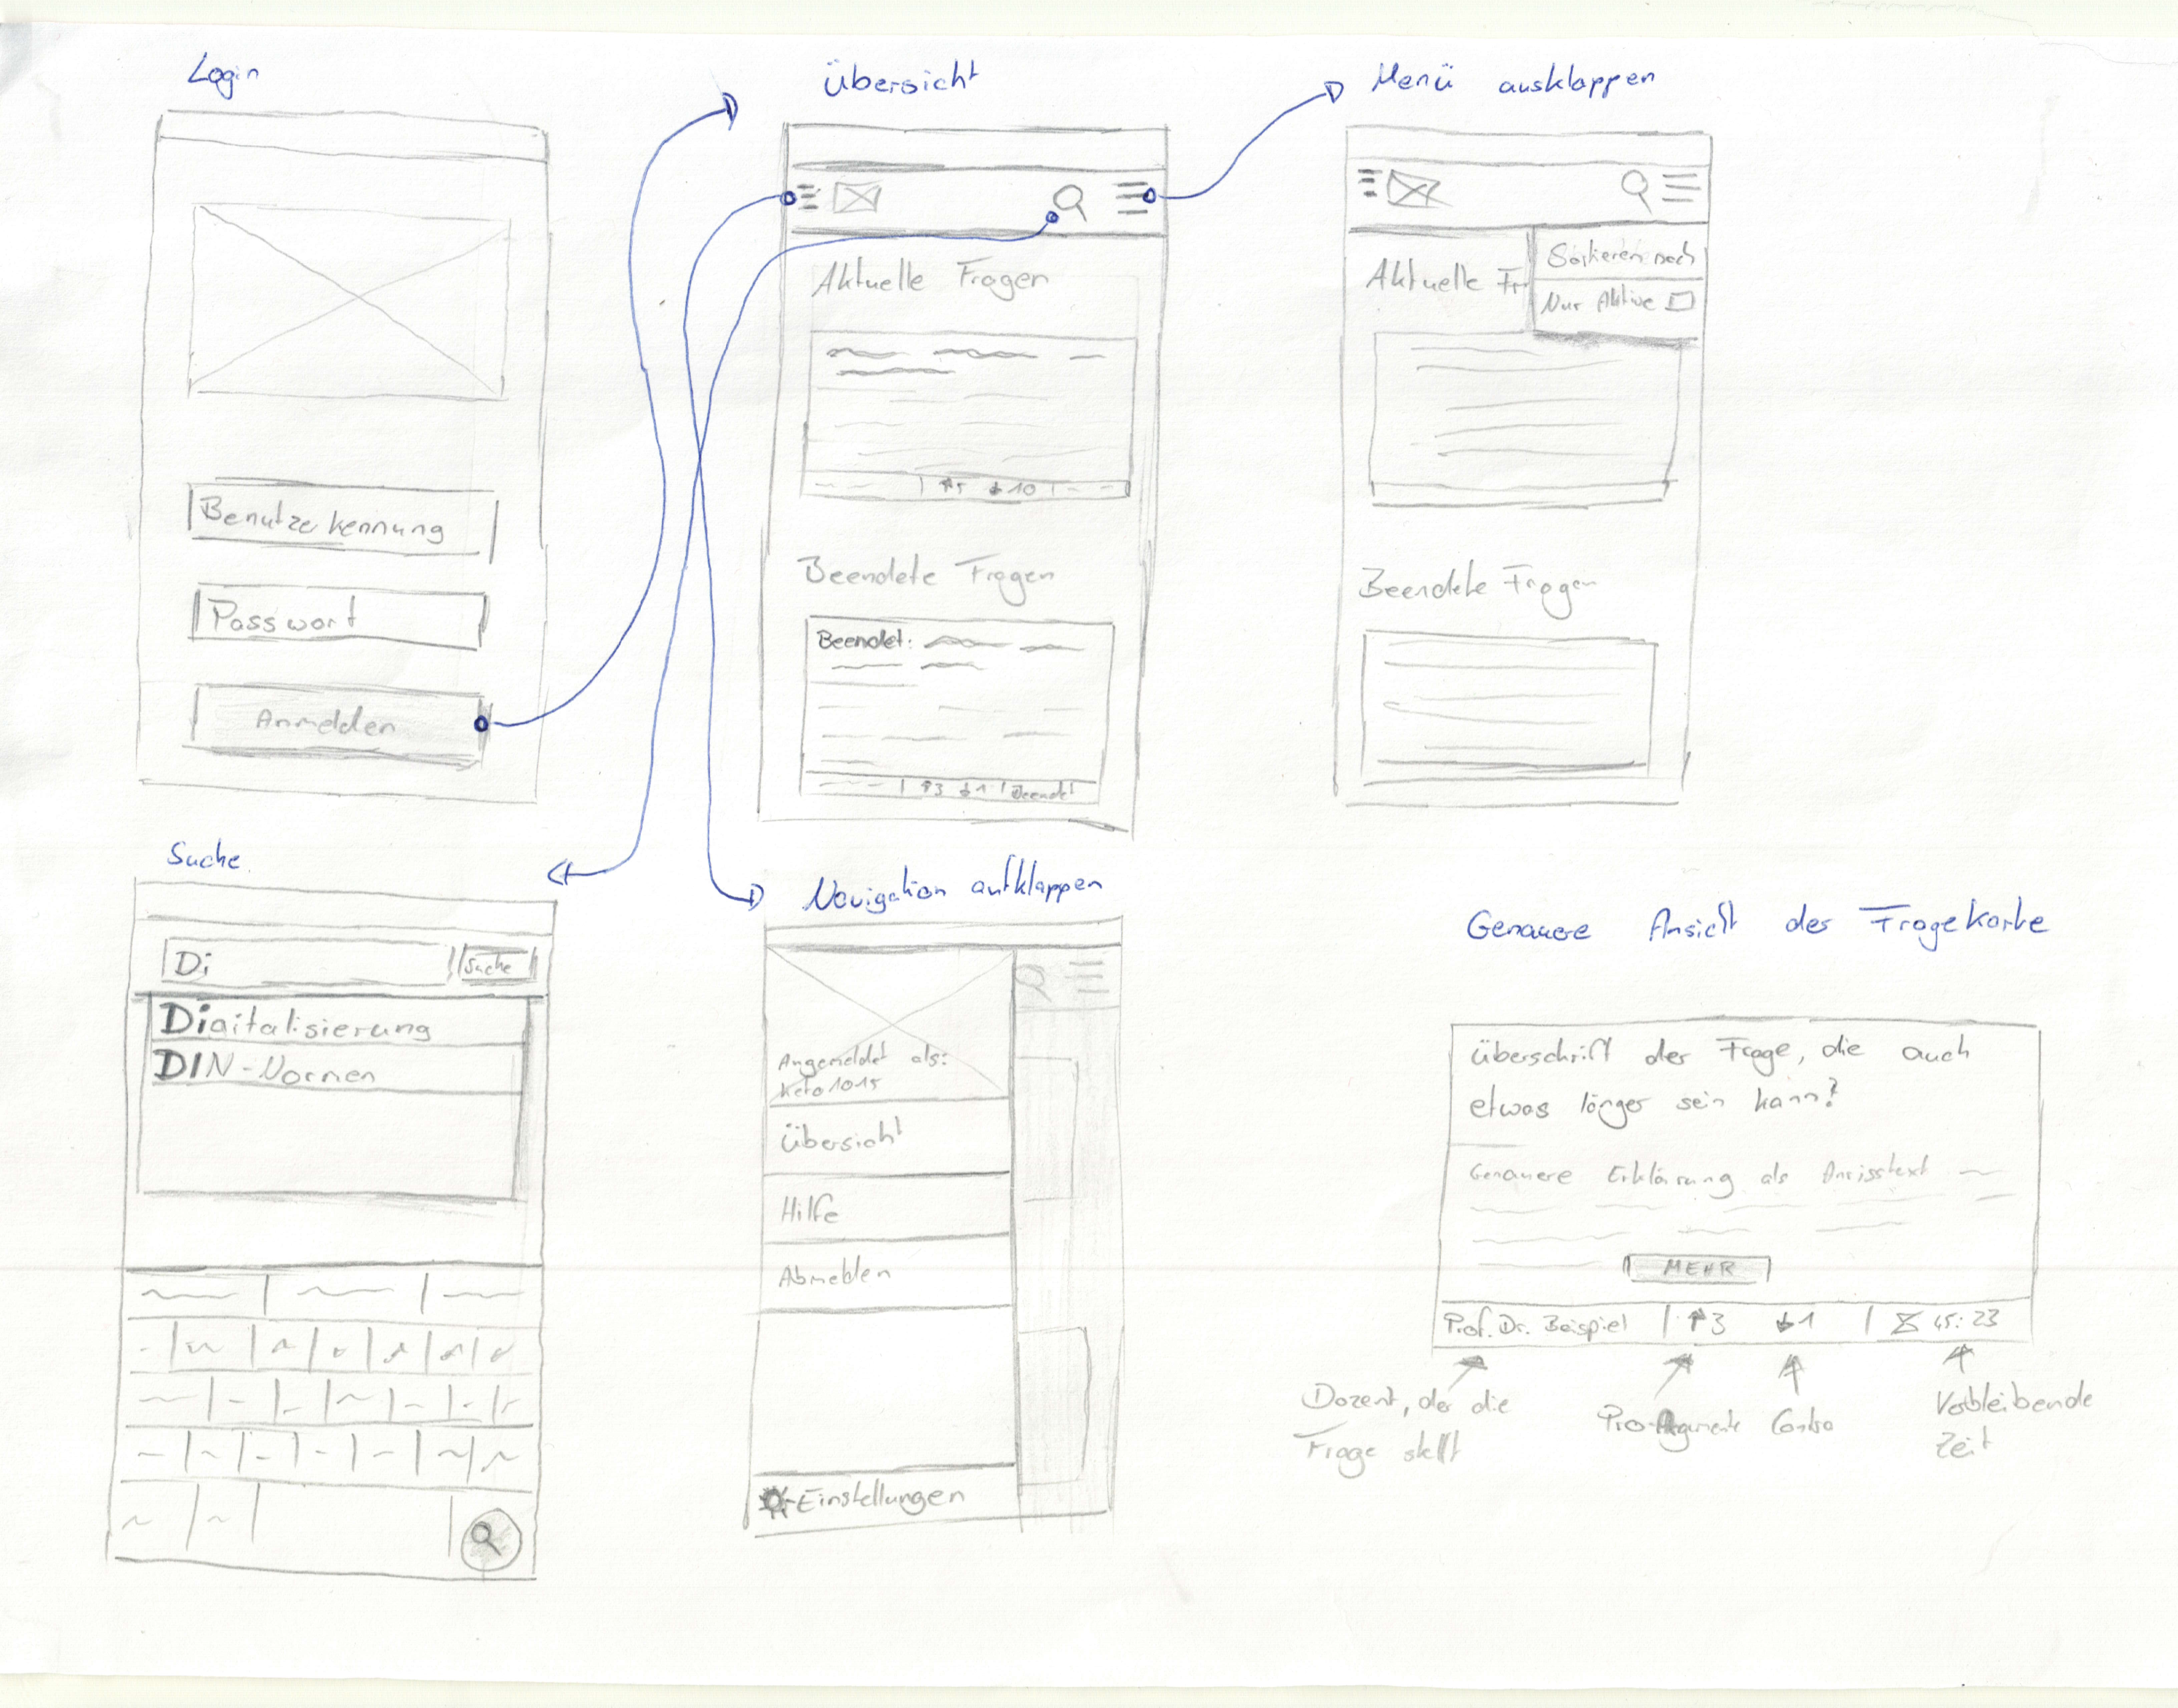 Login
Benutzerkennung
Passwort
Anmelden
Übersicht
Aktuelle Fragen
↑5 ↓10
Beendete Fragen
Beendet:
↑3 ↓1 Beendet
Menü ausklappen
Sortieren nach
Aktuelle Fr
Nur Aktive
Beendete Fragen
Suche
Di
Suche
Digitalisierung
DIN-Normen
Navigation aufklappen
Angemeldet als:
keto1015
Übersicht
Hilfe
Abmelden
Einstellungen
Genauere Ansicht der Fragekarte
Überschrift der Frage, die auch
etwas länger sein kann?
Genauere Erklärung als Anrisstext
MEHR
Prof. Dr. Beispiel | ↑3 ↓1 | 45:23
Dozent, der die
Frage stellt
Pro-Argumente
Contra
Verbleibende
Zeit